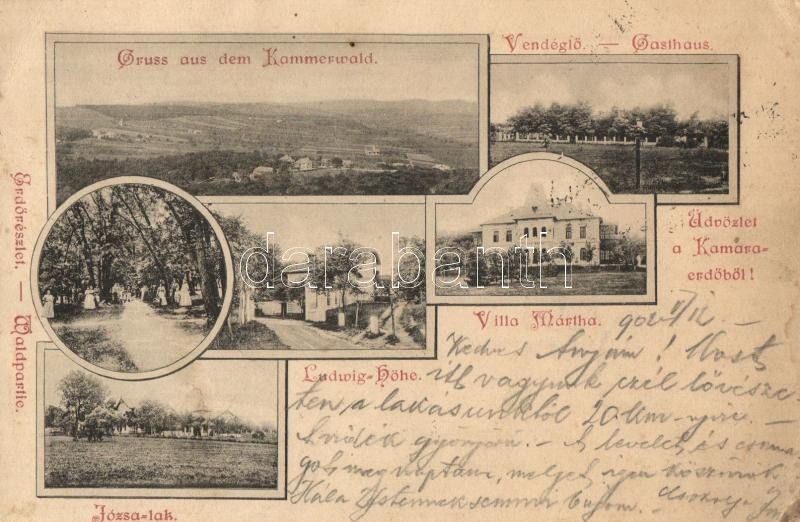 Gruss aus dem Kammerwald.
Vendéglő. — Gasthaus.
Erdőrészlet. — Waldpartie.
Üdvözlet
a Kamara-
erdőből!
darabanth
Villa Mártha.
Ludwig-Höhe.
Józsa-lak.
Kedves Anyám! Most
itt vagyunk czél lövésze
ten a lakásunktól 20 km-nyire. —
A vidék gyönyörű. — A levelet, és csoma
got megkaptam, melyet igen köszönök
Hála Istennek semmi bajom.